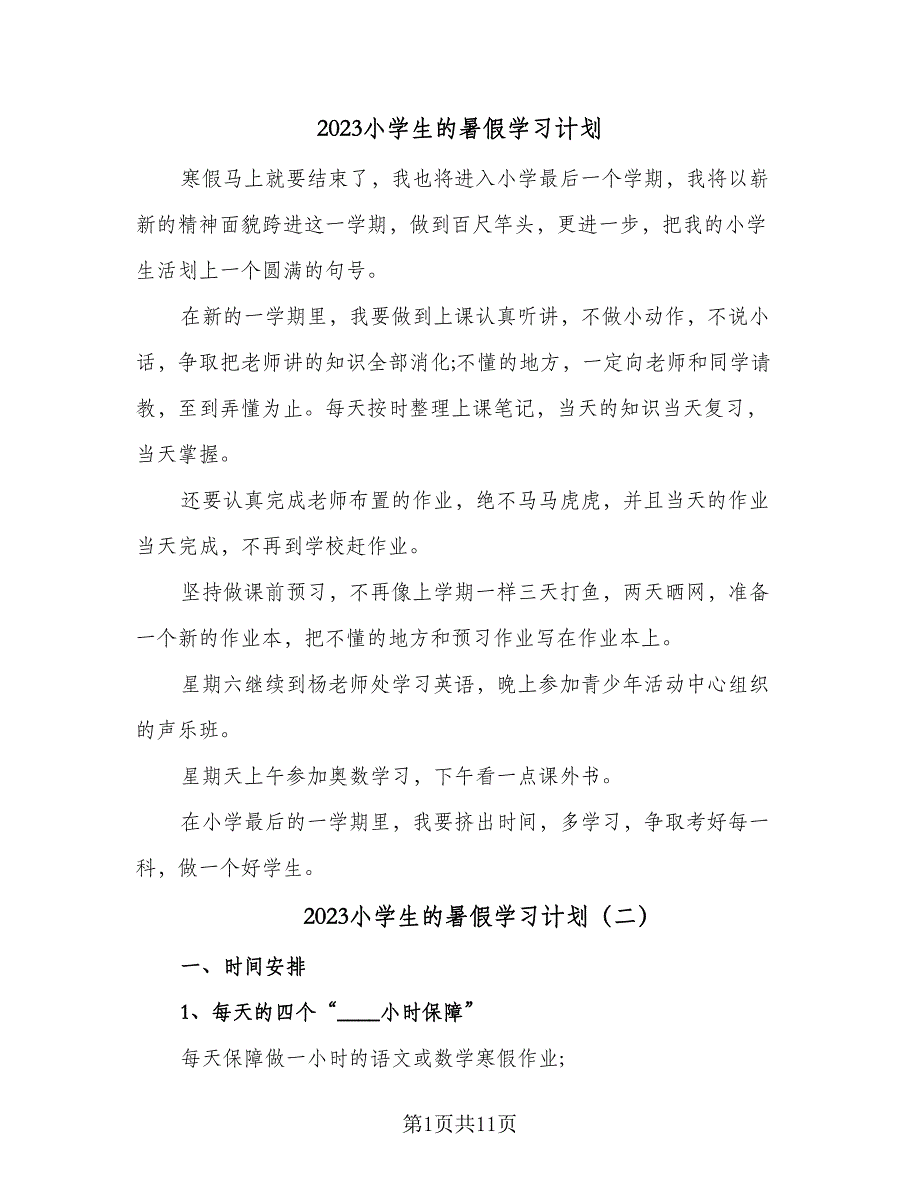 2023小学生的暑假学习计划
寒假马上就要结束了，我也将进入小学最后一个学期，我将以崭
新的精神面貌跨进这一学期，做到百尺竿头，更进一步，把我的小学
生活划上一个圆满的句号。
在新的一学期里，我要做到上课认真听讲，不做小动作，不说小
话，争取把老师讲的知识全部消化;不懂的地方，一定向老师和同学请
教，至到弄懂为止。每天按时整理上课笔记，当天的知识当天复习，
当天掌握。
还要认真完成老师布置的作业，绝不马马虎虎，并且当天的作业
当天完成，不再到学校赶作业。
坚持做课前预习，不再像上学期一样三天打鱼，两天晒网，准备
一个新的作业本，把不懂的地方和预习作业写在作业本上。
星期六继续到杨老师处学习英语，晚上参加青少年活动中心组织
的声乐班。
星期天上午参加奥数学习，下午看一点课外书。
在小学最后的一学期里，我要挤出时间，多学习，争取考好每一
科，做一个好学生。
2023小学生的暑假学习计划（二）
一、时间安排
1、每天的四个“____小时保障”
每天保障做一小时的语文或数学寒假作业;
第1页共11页